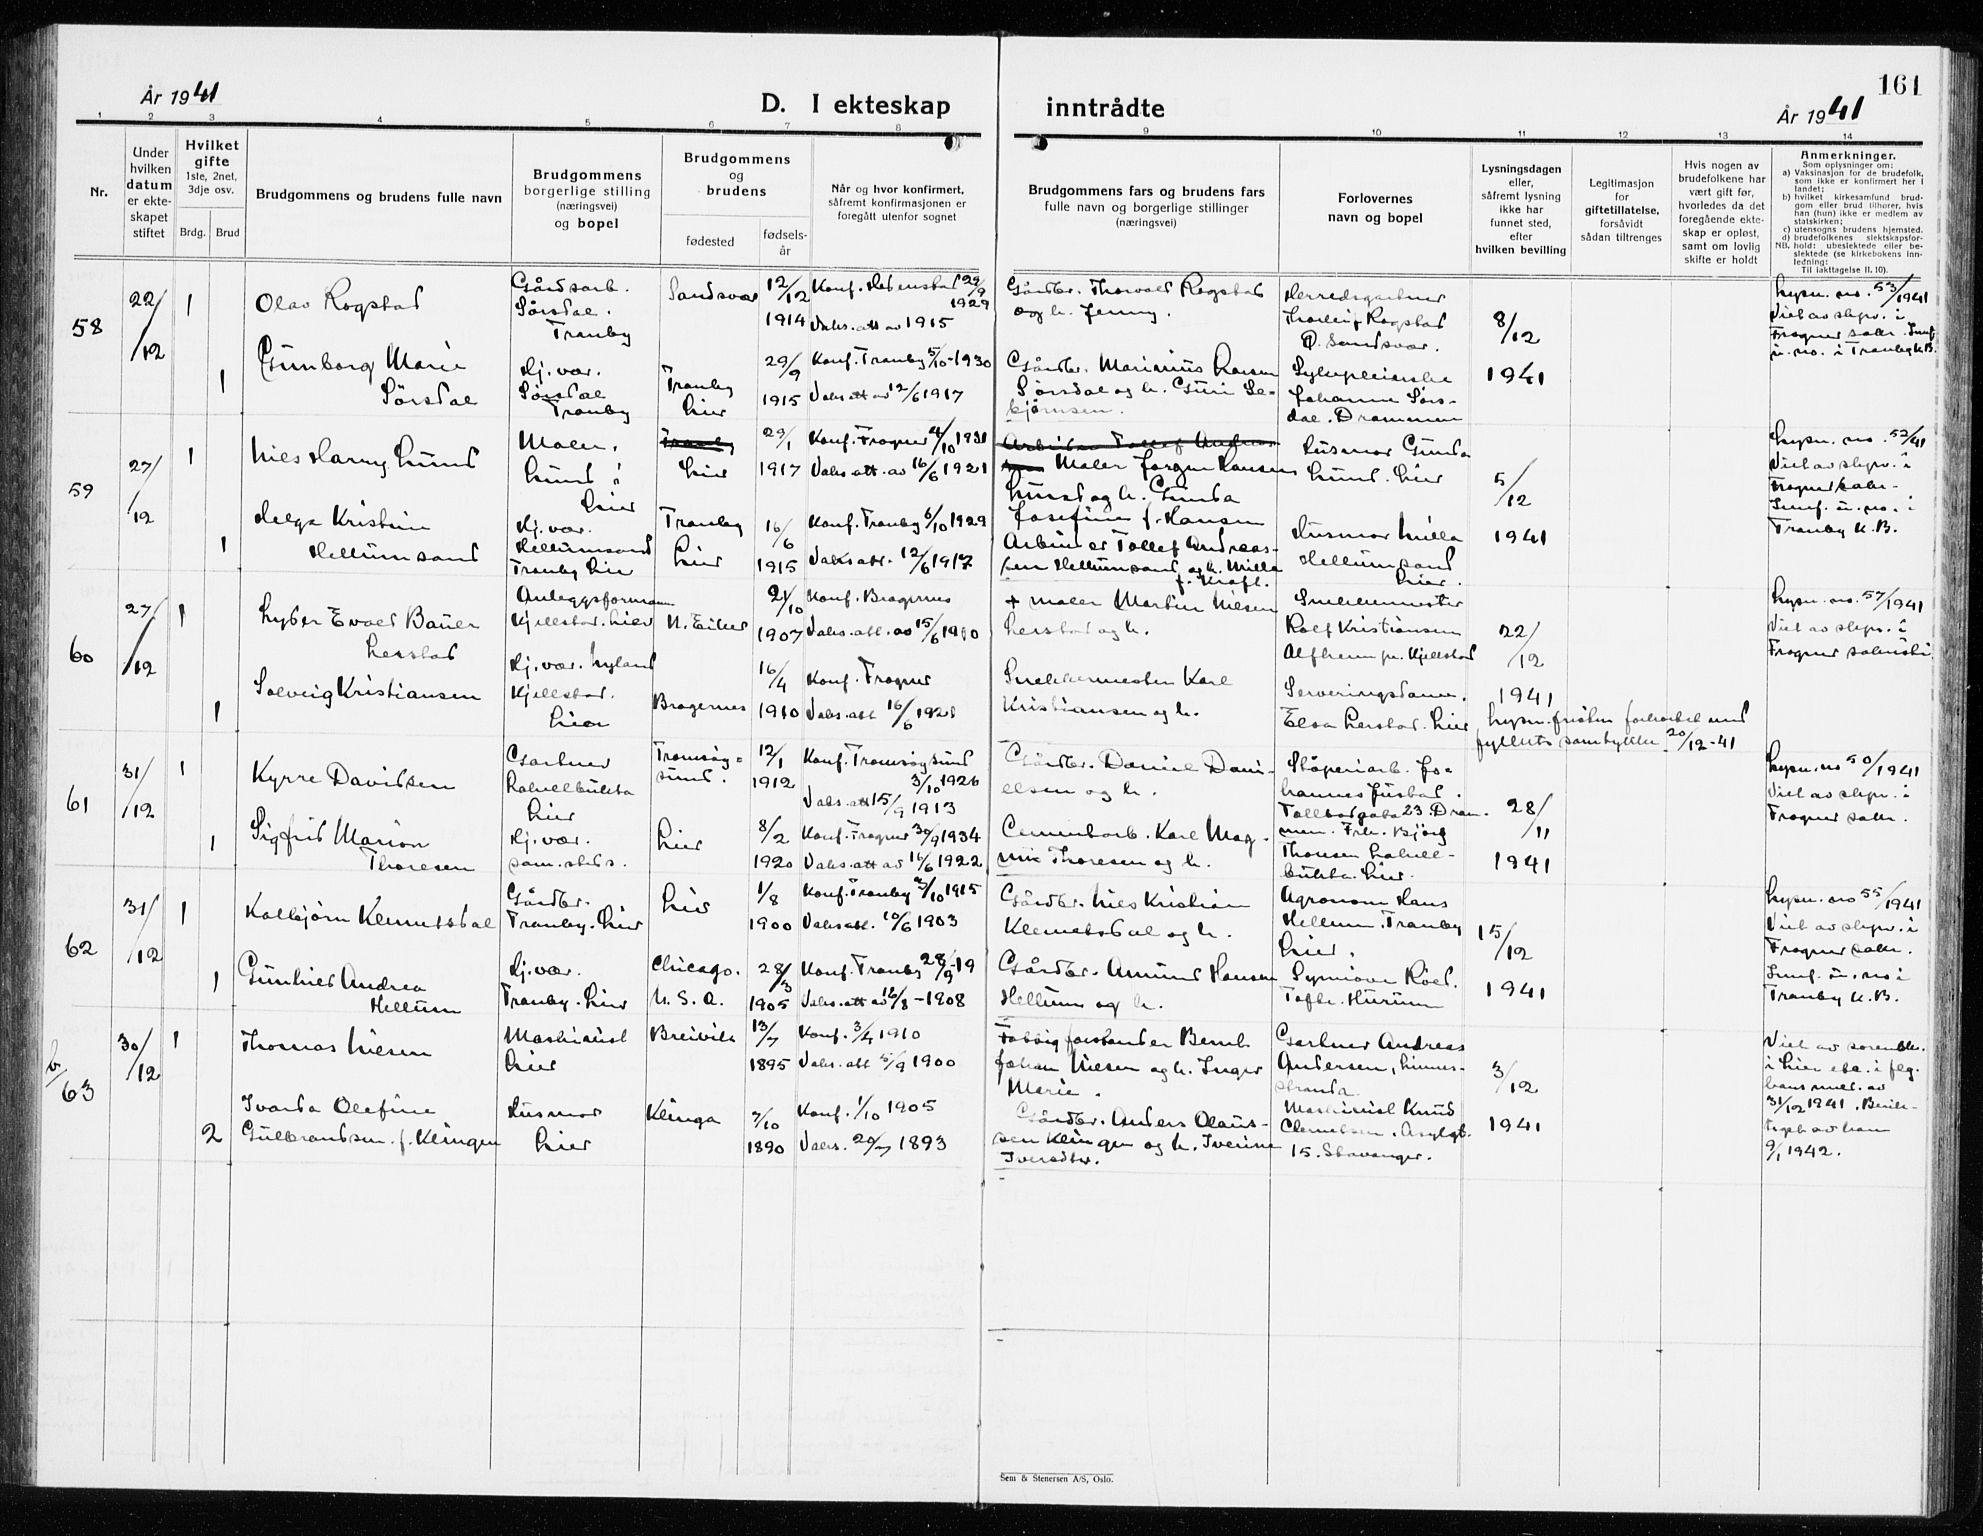 161
År 1941
D. I ekteskap inntrådte
År 1941
1 2 3 4 5 6 7 8 9 10 11 12 13 14
Nr.
Under hvilken datum er ekteskapet stiftet
Hvilket gifte
1ste, 2net, 3dje osv.
Brdg. Brud
Brudgommens og brudens fulle navn
Brudgommens
borgerlige stilling
(næringsvei)
og bopel
Brudgommens
og
brudens
fødested
fødsels-
år
Når og hvor konfirmert,
såfremt konfirmasjonen er
foregått utenfor sognet
Brudgommens fars og brudens fars
fulle navn og borgerlige stillinger
(næringsvei)
Forlovernes
navn og bopel
Lysningsdagen
eller,
såfremt lysning
ikke har
funnet sted,
efter
hvilken bevilling
Legitimasjon
for
giftetillatelse,
forsåvidt
sådan tiltrenges
Hvis nogen av
brudefolkene har
vært gift før,
hvorledes da det
foregående ekte-
skap er opløst,
samt om lovlig
skifte er holdt
Anmerkninger.
Som oplysninger om:
a) Vaksinasjon for de brudefolk,
som ikke er konfirmert her i
landet;
b) hvilket kirkesamfund brud-
gom eller brud tilhører, hvis
han (hun) ikke er medlem av
statskirken;
c) utensogns brudens hjemsted.
d) brudefolkenes slektskapsfor-
NB. hold: ubeslektede eller be-
slektede (se kirkebokens inn-
ledning:
Til iakttagelse II. 10).
58
22/12
1
Olav Rogstad
Gårdsarb.
Sørsdal.
Tranby
Sandsvær
12/12
1914
Konf. Hedenstad 29/9
1929
Vaks. att av 1915
Gårdbr. Thorvald Rogstad
og h. Jenny.
Herredsgartner
Thorleif Rogstad
Ø. Sandsvær.
8/12
1941
Lysn. no. 53/1941
Viet av slspr. i
1
Gunborg Marie
Sørsdal
Hj. vær.
Sørsdal
Tranby
Tranby
Lier
29/9
1915
Konf. Tranby 5/10-1930
Vaks att av 12/6 1917
Gårdbr. Marinius Larsen
Sørsdal og h. Guri
Sykepleierske
Johanne Sørs-
dal. Drammen
59
27/12
1
Nils Harry Lund
Maler.
Lund i
Lier
Lier
29/1
1917
Konf. Frogner 4/10 1931
Vaks att. av 16/6 1921
Maler Jørgen Hansen
Lund og h. Gunda
Josefine f. Hansen
Husmor Gunda
Lund. Lier
5/12
1941
Lysn. no. 52/41
Viet av slspr. i
Tranby K.B.
1
Helga Kristine
Hellumsand
Hj. vær.
Hellumsand
Tranby Lier
Tranby
Lier
16/6
1915
Konf. Tranby 6/10 1929
Vaks att. 12/6 1917
Arbeider Tollef Andreas-
sen Hellumsand og h. Milla
f. Kraft.
Husmor Milla
Hellumsand
Lier.
60
27/12
1
Lyder Evald Bauer
Lerstad
Anleggsformann
Kjellstad. Lier
N. Eiker
21/10
1907
Konf. Bragernes
Vaks. att. av 15/6 1910
+ maler Martin Nilsen
Lerstad og h.
Snekkermester
Rolf Kristiansen
Alfheim pr. Kjellstad
22/12
1941
Lysn. no. 57/1941
Viet av slspr. i
1
Solveig Kristiansen
Hj. vær. Nyland
Kjellstad.
Lier
Bragernes
16/4
1910
Konf. Frogner
Vaks. att 16/6 1921
Snekkermester Karl
Kristiansen og h.
Serveringsdame.
Elsa Lerstad. Lier
Lysn. fristen forkortet med
fylkets samtykke 20/12-41
61
31/12
1
Kyrre Davidsen
Gartner
Lahellbukta
Lier
Tromsøy-
sund.
12/1
1912
Konf. Tromsøysund
3/10 1926
Vaks. att 15/9 1913
Gårdbr. Daniel Dani-
elsen og h.
Støperiarb. Jo-
hannes Justad.
Tollbodgata 23. Dram-
men. Frk. Bjørg
Thoresen Lahell-
bukta. Lier.
28/11
1941
Lysn. no 50/1941
Viet av slspr. i
Frogner sakr.
1
Sigfrid Marion
Thoresen
Hj. vær.
sam. steds.
Lier
8/2
1920
Konf. Frogner 30/9 1934
Vaks. att av 16/6 1922
Cementarb. Karl Mag-
nus Thoresen og h.
62
31/12
1
Kolbjørn Klemetsdal
Gårdbr.
Tranby. Lier
Lier
1/8
1900
Konf. Tranby 3/10 1915
Vaks att. 10/6 1903
Gårdbr. Nils Kristian
Klemetsdal og h.
Agronom Hans
Hellum. Tranby
Lier.
15/12
1941
Lysn. no 55/1941
Viet av slspr. i
Frogner sakr.
Tranby K.B.
1
Gunhild Andrea
Hellum
Hj. vær.
Tranby. Lier
Chicago.
U.S.A.
28/3
1905
Konf. Tranby 28/9-19
Vaks. att av 16/8-1908
Gårdbr. Amund Hansen
Hellum og h.
Synnøve Røed.
Tofte. Hurum
b/63
30/12
1
Thomas Nilsen
Maskinist
Lier
Breivik
13/7
1895
Konf. 3/4 1910
Vaks. att 5/9 1900
Fattigforstander Bernt
Johan Nilsen og h. Inger
Marie.
Gartner Andreas
Andersen, Linnes-
stranda.
3/12
1941
Viet av
i Lier
31/12 1941.
9/1 1942.
2
Ivarda Olefine
Gulbrandsen f. Klingen
Husmor
Lier
Klinga
7/10
1890
Konf. 1/10 1905
Vaks. 29/7 1893
Gårdbr. Anders Olaus-
sen Klingen og h. Iverine
Iversdtr.
Maskinist Knud
Clemetsen. Asylgt.
15. Stavanger.
Sem & Stenersen A/S, Oslo.